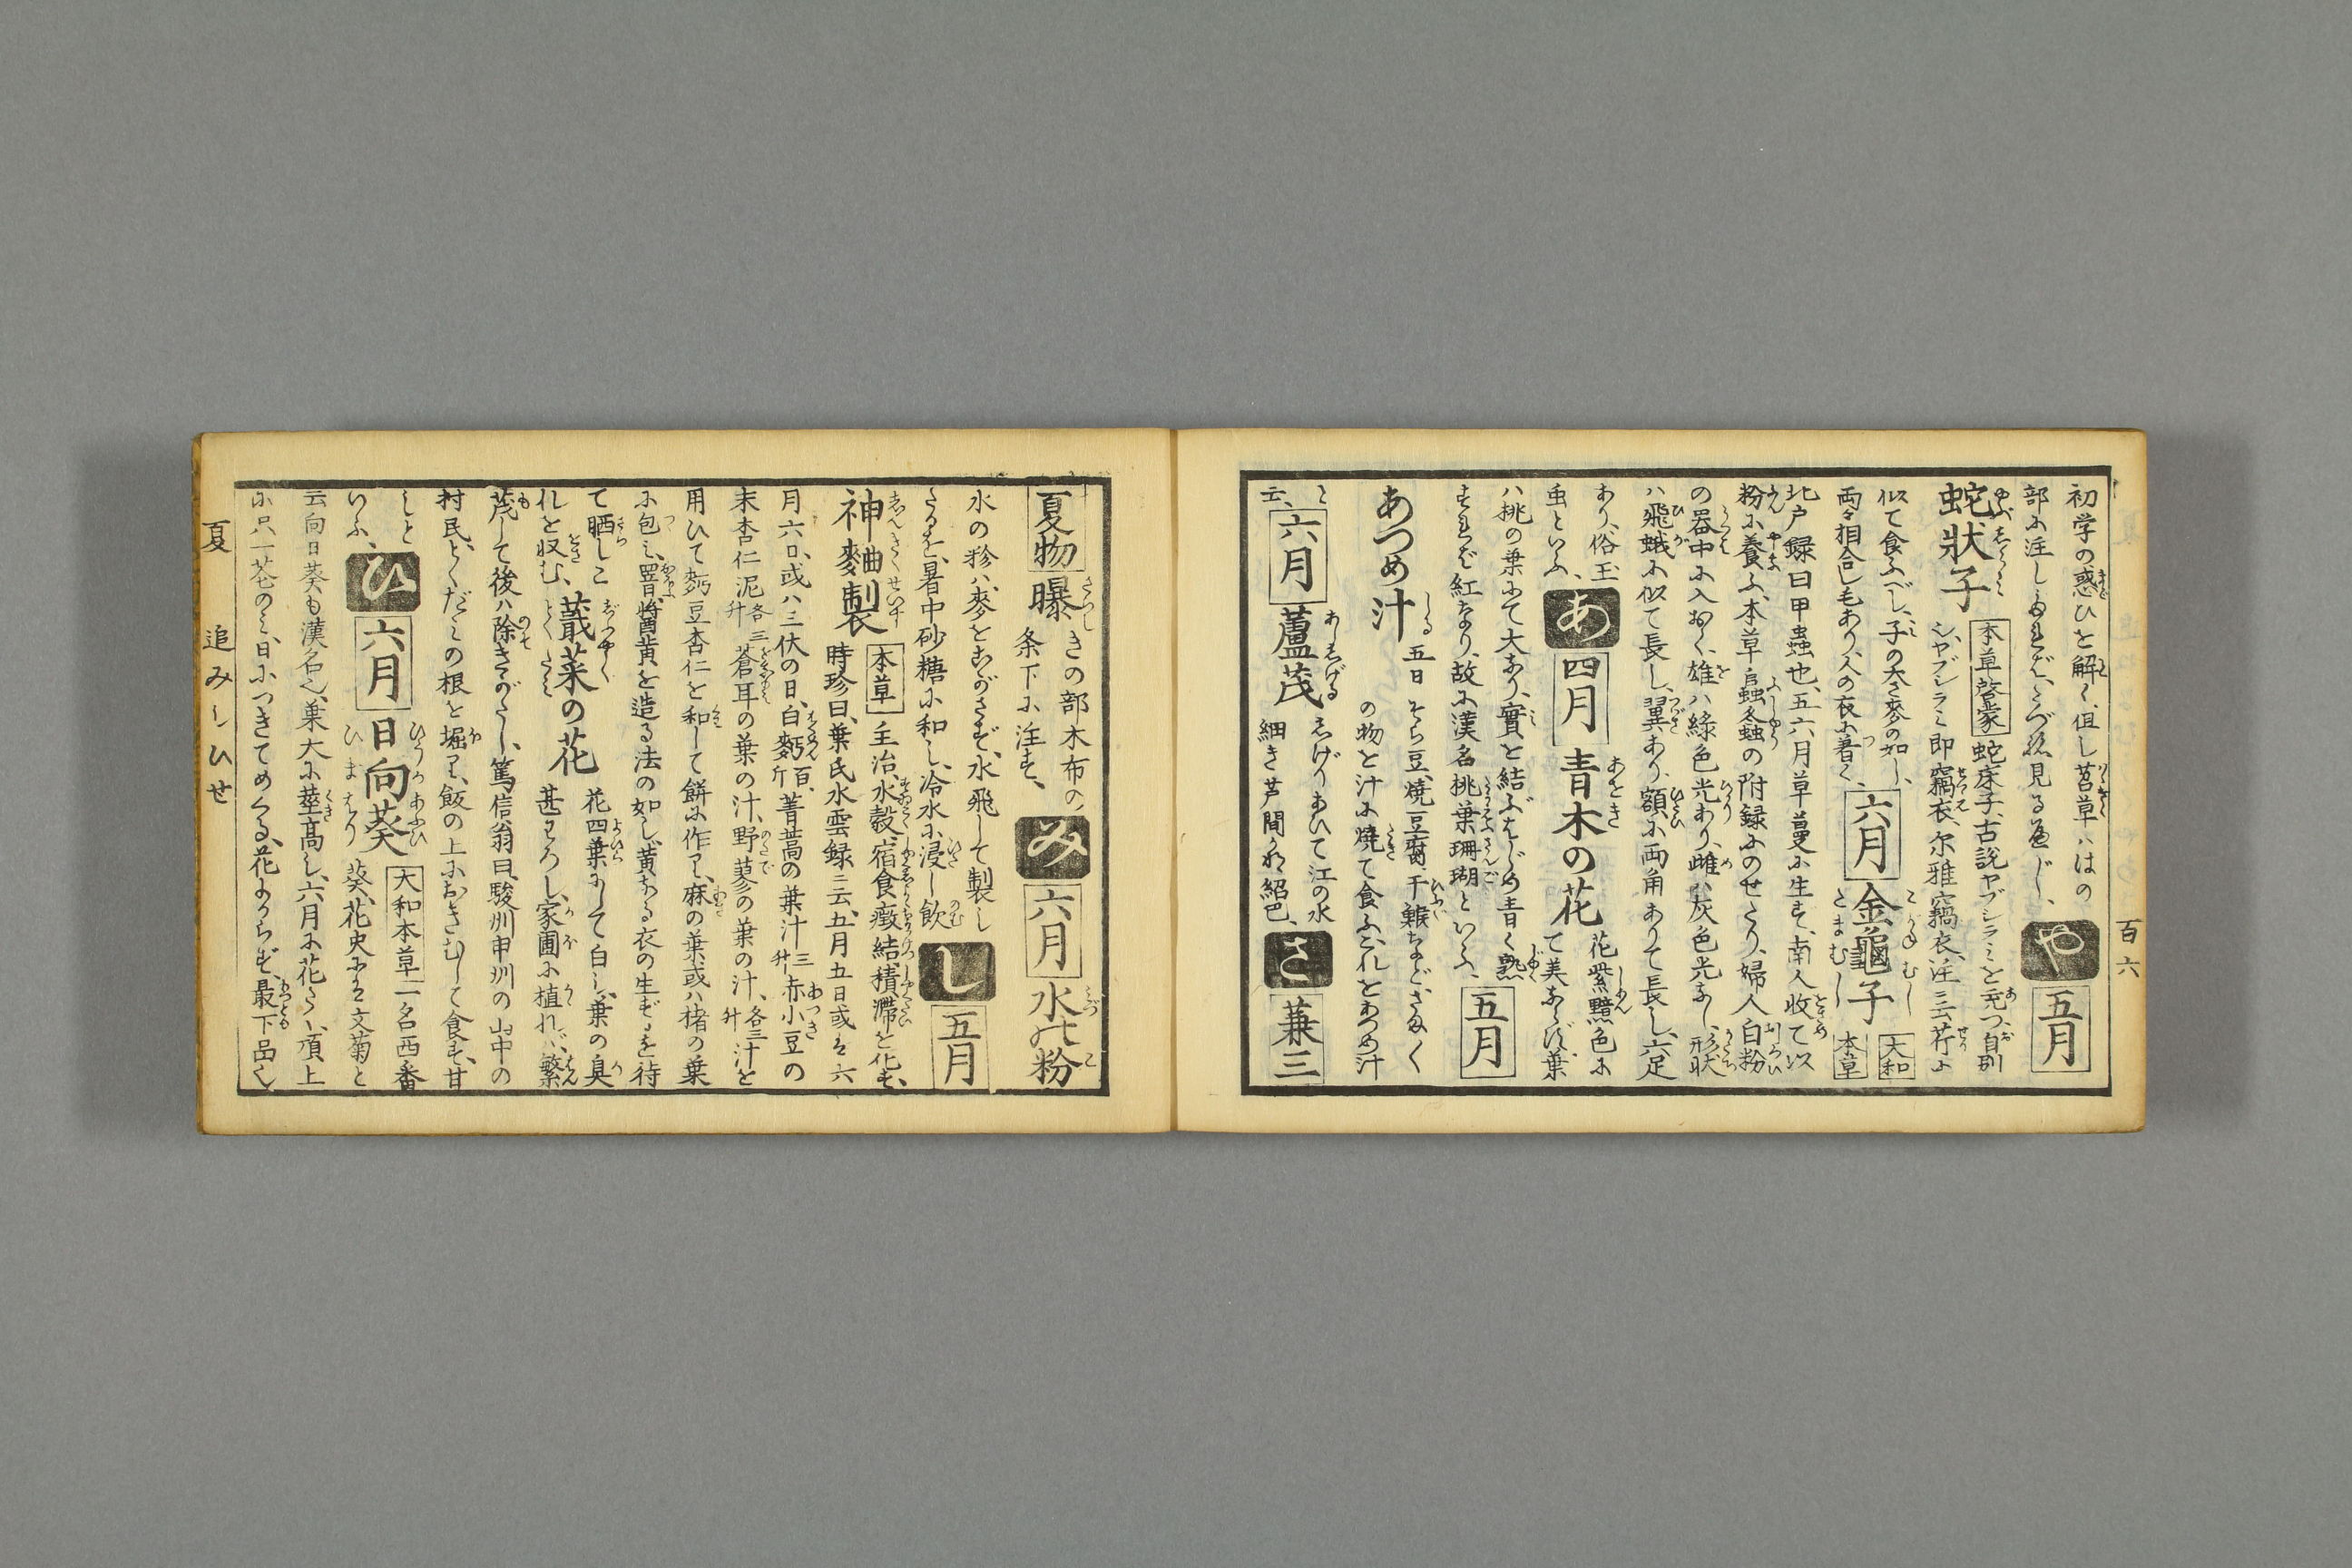 百六
初学の惑ひを解く、但し莒草ハはの
部に注しぬれバ、くづ 見る べし、
や
五月
蛇牀子
本草啓蒙
蛇床子、古説ヤブジラミを充つ、自別
し、ヤブジラミ即竊衣、尓雅竊衣、注ニ云芹に
似て食ふべし、子の大さ麥の如し、
両々相合し毛あり、人の衣に著く、
六月
金龜子
こがねむし
たまむし
大和
本草
北户録曰甲蟲也、五六月草蔓に生ず、南人收て以
粉に養ふ、本草 の附録にのせたり、婦人白粉
の器中に入おく、雄ハ緑色光あり、雌ハ灰色光なし、形狀
ハ飛蛾に似て長し、翼あり、額に両角ありて長し、六足
あり、俗玉
虫といふ、
あ
四月
青木の花
あをき
花紫黯色に
て美ならず、葉
ハ桃の葉にて大なり、實を結ぶはじめ青く熟
すれバ紅なり、故に漢名桃葉珊瑚といふ、
五月
あつめ汁
五日そら豆、焼豆腐、干 など、さまく
の物を汁に焼て食ふ、これをあつめ汁
と
云、
六月
蘆茂
あししげる
しげりあひて江の水
細き芦間かな 紹巴、
さ
兼三
夏物
曝
きの部木布の
条下に注す、
み
六月
水の粉
水の粉ハ、麥をこがさず、水飛して製し
たるを、暑中砂糖に和し、冷水に浸し飲
し
五月
神麯製
本草
主治、水穀、宿食癥結積滞を化す、
時珍曰、葉氏水雲録ニ云、五月五日或は六
月六日、或ハ三伏の日、白麪百斤、菁蒿の葉汁三升、赤小豆の
末杏仁泥各三升蒼耳の葉の汁、野蓼の葉の汁、各三升汁を
用ひて麪豆杏仁を和して餅に作り、麻の葉或ハ楮の葉
に包ミ、罯醬黄を造る法の如し、黄なる衣の生ずるを待
て晒しこ
れを収む、
蕺菜の花
花四葉にして白し、葉の臭
甚わろし、家圃に植れバ、繁
茂して後ハ除きがたし、篤信翁曰、駿州甲州の山中の
村民、どくだミの根を堀り、飯の上におきむして食す、甘
しと
いふ、
ひ
六月
日向葵
ひうがあふひ
ひまはり
大和本草
一名西番
葵、花史には文菊と
云向日葵も漢名也、葉大に莖高し、六月に花さく、頂上
に只一花のミ、日につきてめくる、花よからず、最下品也
夏　追みしひせ